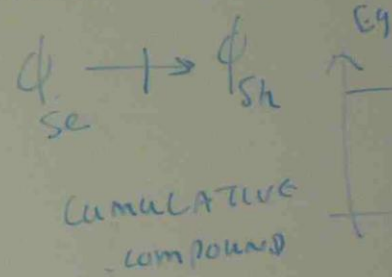 ϕse ⟶ ϕsh
Eg
CUMULATIVE
COMPOUND